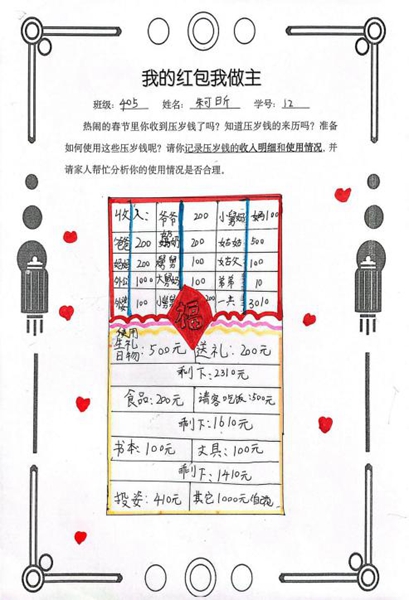 我的红包我做主
班级：405 姓名： 学号：12
热闹的春节里你收到压岁钱了吗？知道压岁钱的来历吗？准备
如何使用这些压岁钱呢？请你记录压岁钱的收入明细和使用情况，并
请家人帮忙分析你的使用情况是否合理。
收入： 爷爷 200 小舅妈 100
爸爸 200 奶奶 200 姑姑 500
妈妈 200 舅舅 100 姑父 100
外公 1000 大舅妈 100 弟弟 10
外婆 100 小舅舅 200 一共 3010
福
使用
生礼
日物：500元 送礼：200元
剩下：2310元
食品：200元 请客吃饭：500元
乖下：1610元
书本：100元 文具：100元
乖下：1410元
投姿：410元 其它1000元